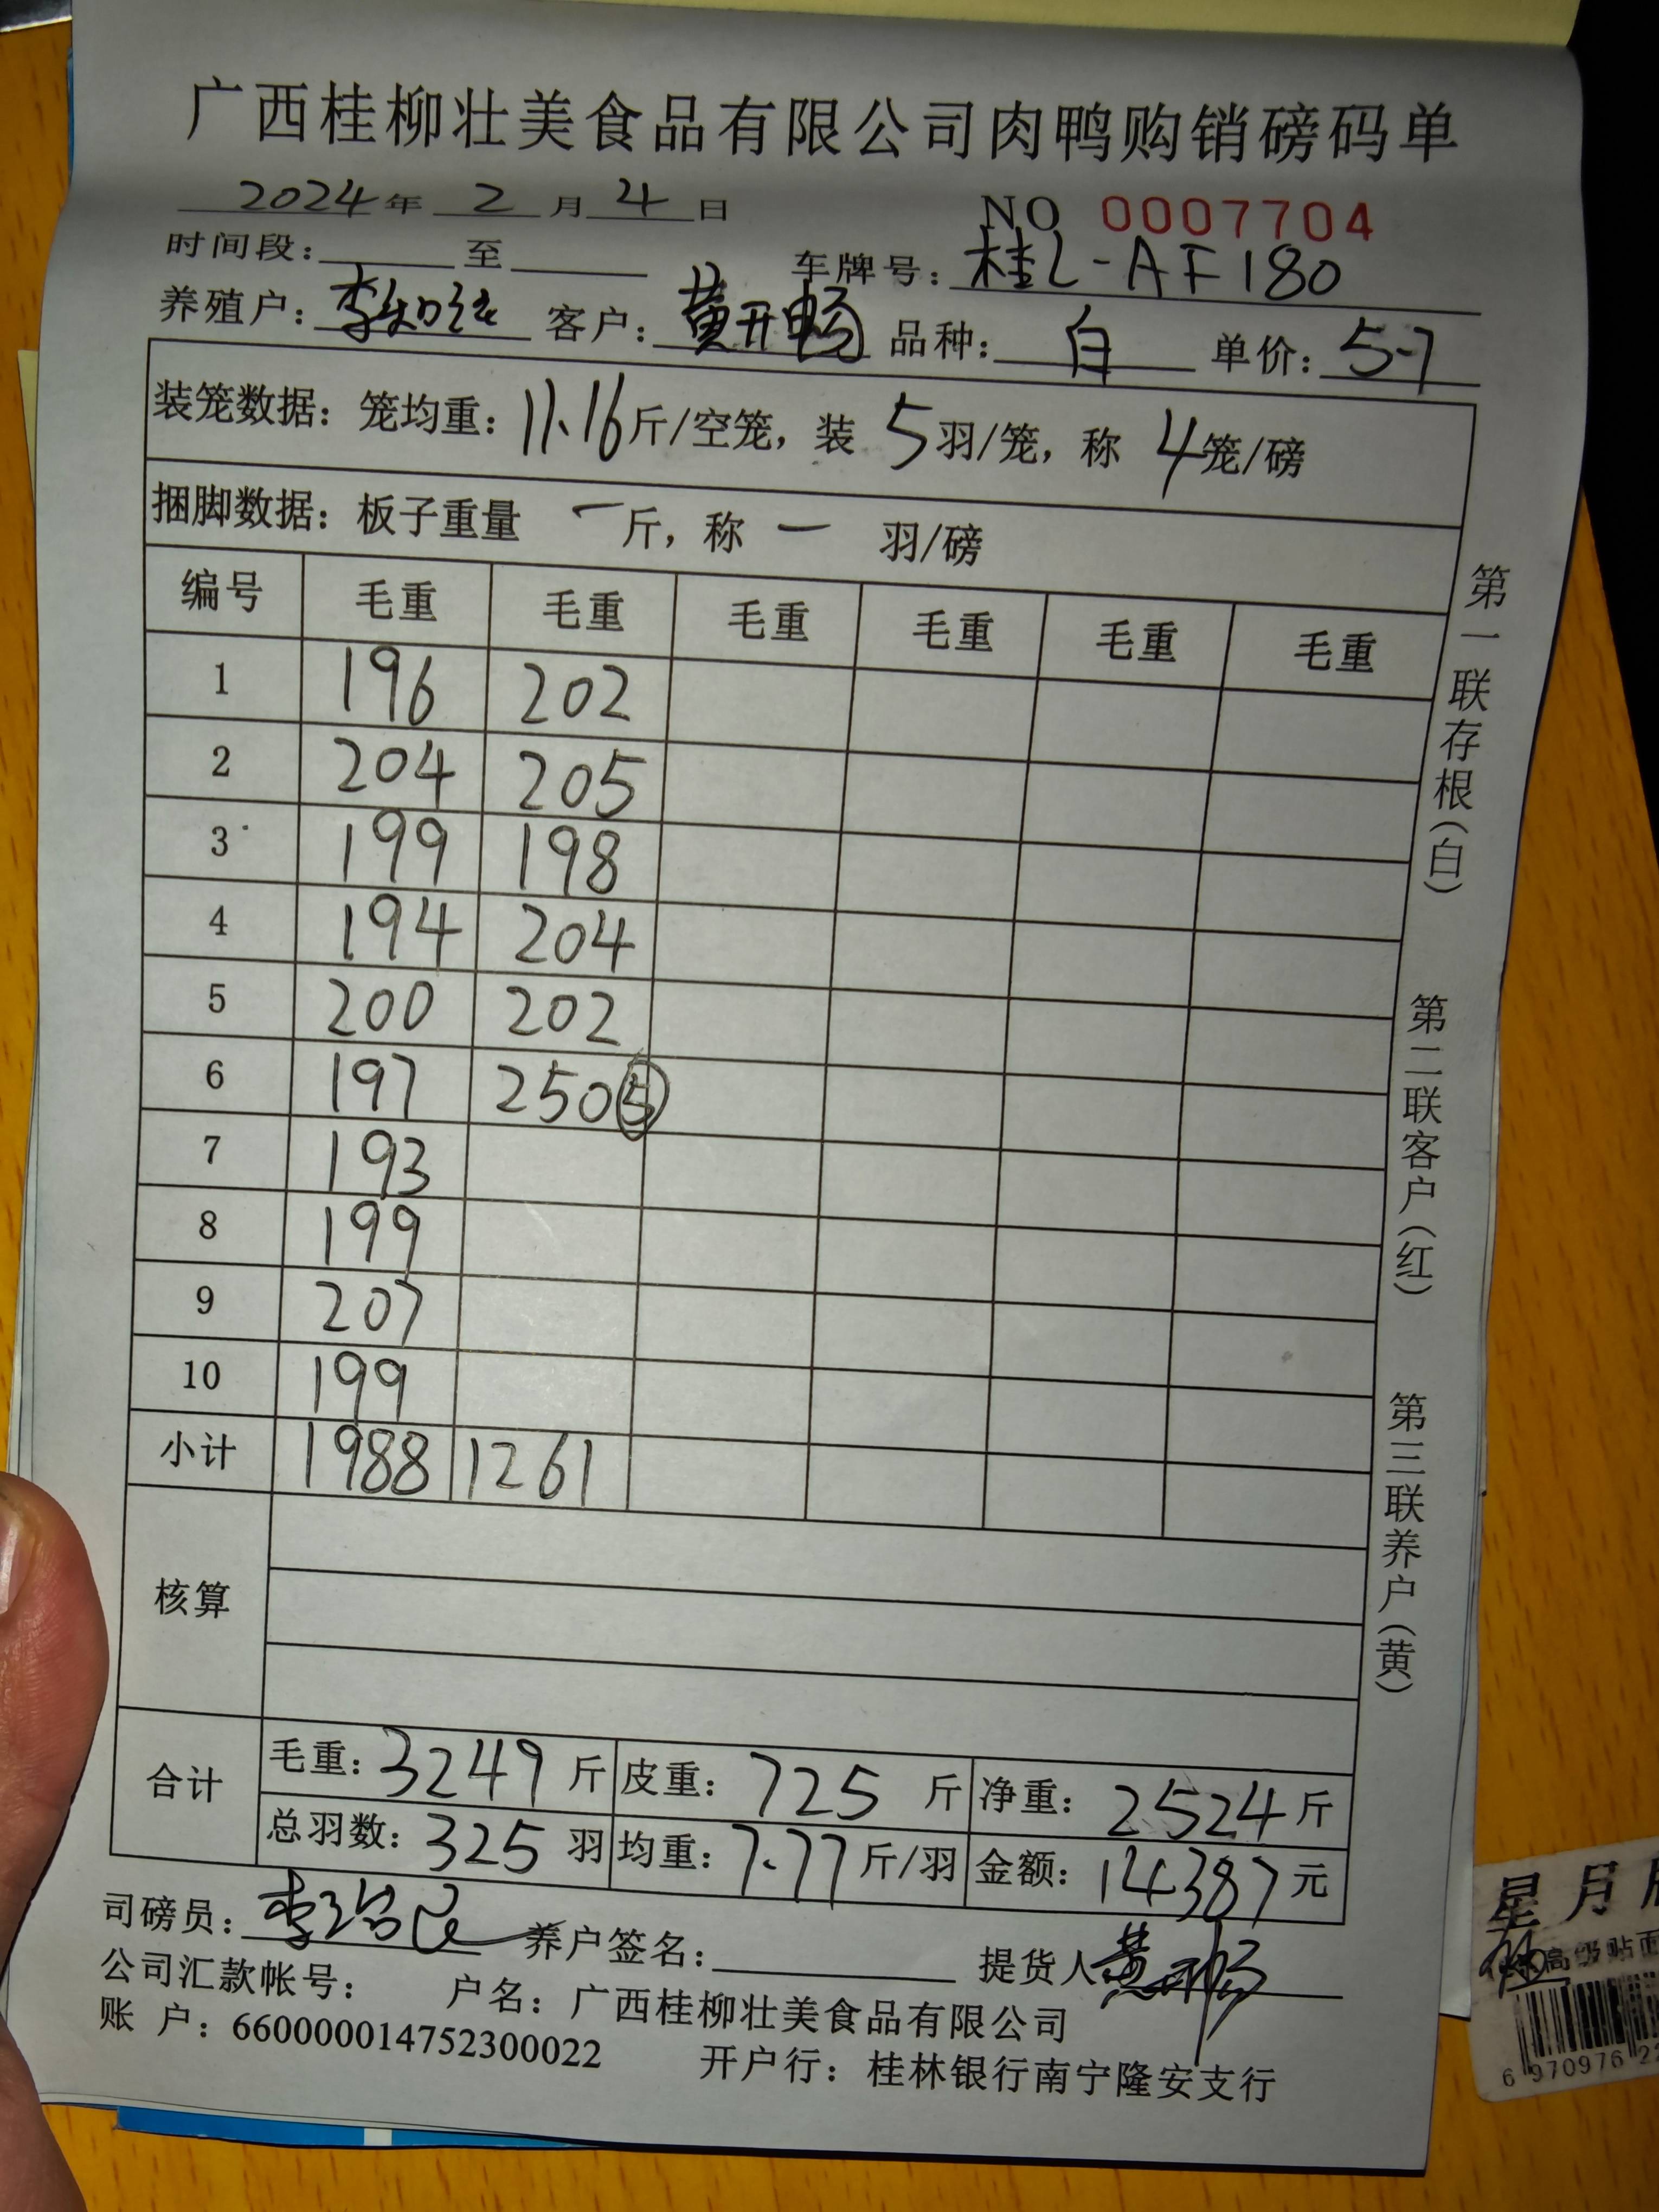 广西桂柳壮美食品有限公司肉鸭购销磅码单
2024年 2 月 4 日 NO 0007704
时间段: 至 车牌号: 桂L-AF180
养殖户: 李 客户: 黄开畅 品种: 白 单价: 5.7
装笼数据: 笼均重: 11.16斤/空笼, 装 5羽/笼, 称 4笼/磅
捆脚数据: 板子重量 一 斤, 称 一 羽/磅
编号 毛重 毛重 毛重 毛重 毛重 毛重
1 196 202
2 204 205
3 199 198
4 194 204
5 200 202
6 197 250⑤
7 193
8 199
9 207
10 199
小计 1988 1261
核算
合计 毛重: 3249 斤 皮重: 725 斤 净重: 2524 斤
总羽数: 325 羽 均重: 7.77斤/羽 金额: 14387 元
司磅员: 李 养户签名: 提货人 黄开畅
公司汇款帐号: 户名: 广西桂柳壮美食品有限公司
账 户: 660000014752300022 开户行: 桂林银行南宁隆安支行
第一联存根(白)
第二联客户(红)
第三联养户(黄)
星月
高级贴面
6 970976 22